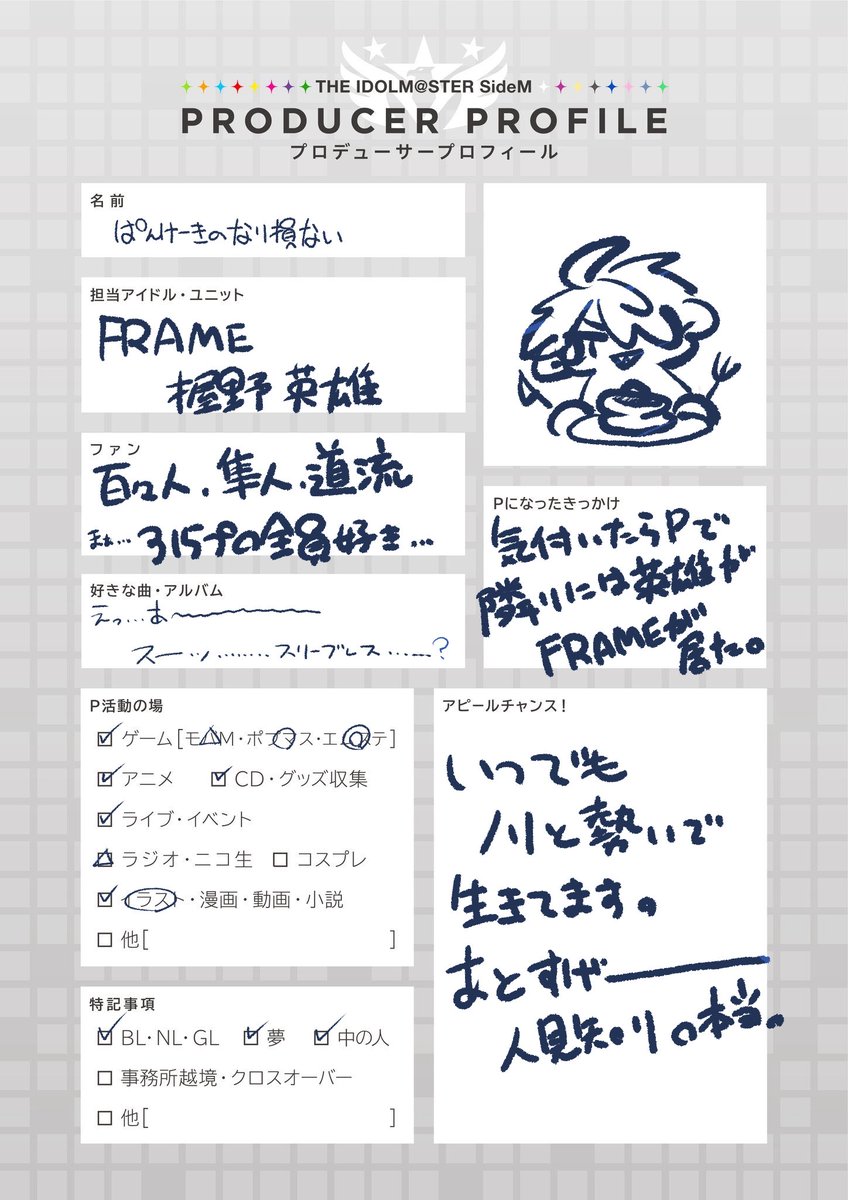 THE IDOLM@STER SideM
PRODUCER PROFILE
プロデューサープロフィール
名前
ぱんけーきのなり損ない
担当アイドル・ユニット
FRAME
握野 英雄
ファン
百々人、隼人、道流
まぁ…315プロ全員好き…
好きな曲・アルバム
えっ…あ〜
スーッ………スリーブレス……?
Pになったきっかけ
気付いたらPで
隣りには英雄が
FRAMEが
居た。
P活動の場
ゲーム[モバM・ポプマス・エムステ]
アニメ
CD・グッズ収集
ライブ・イベント
ラジオ・ニコ生
コスプレ
イラスト・漫画・動画・小説
他[ ]
特記事項
BL・NL・GL
夢
中の人
事務所越境・クロスオーバー
他[ ]
アピールチャンス!
いつでも
ノリと勢いで
生きてます。
あとすげー
人見知りの本当。